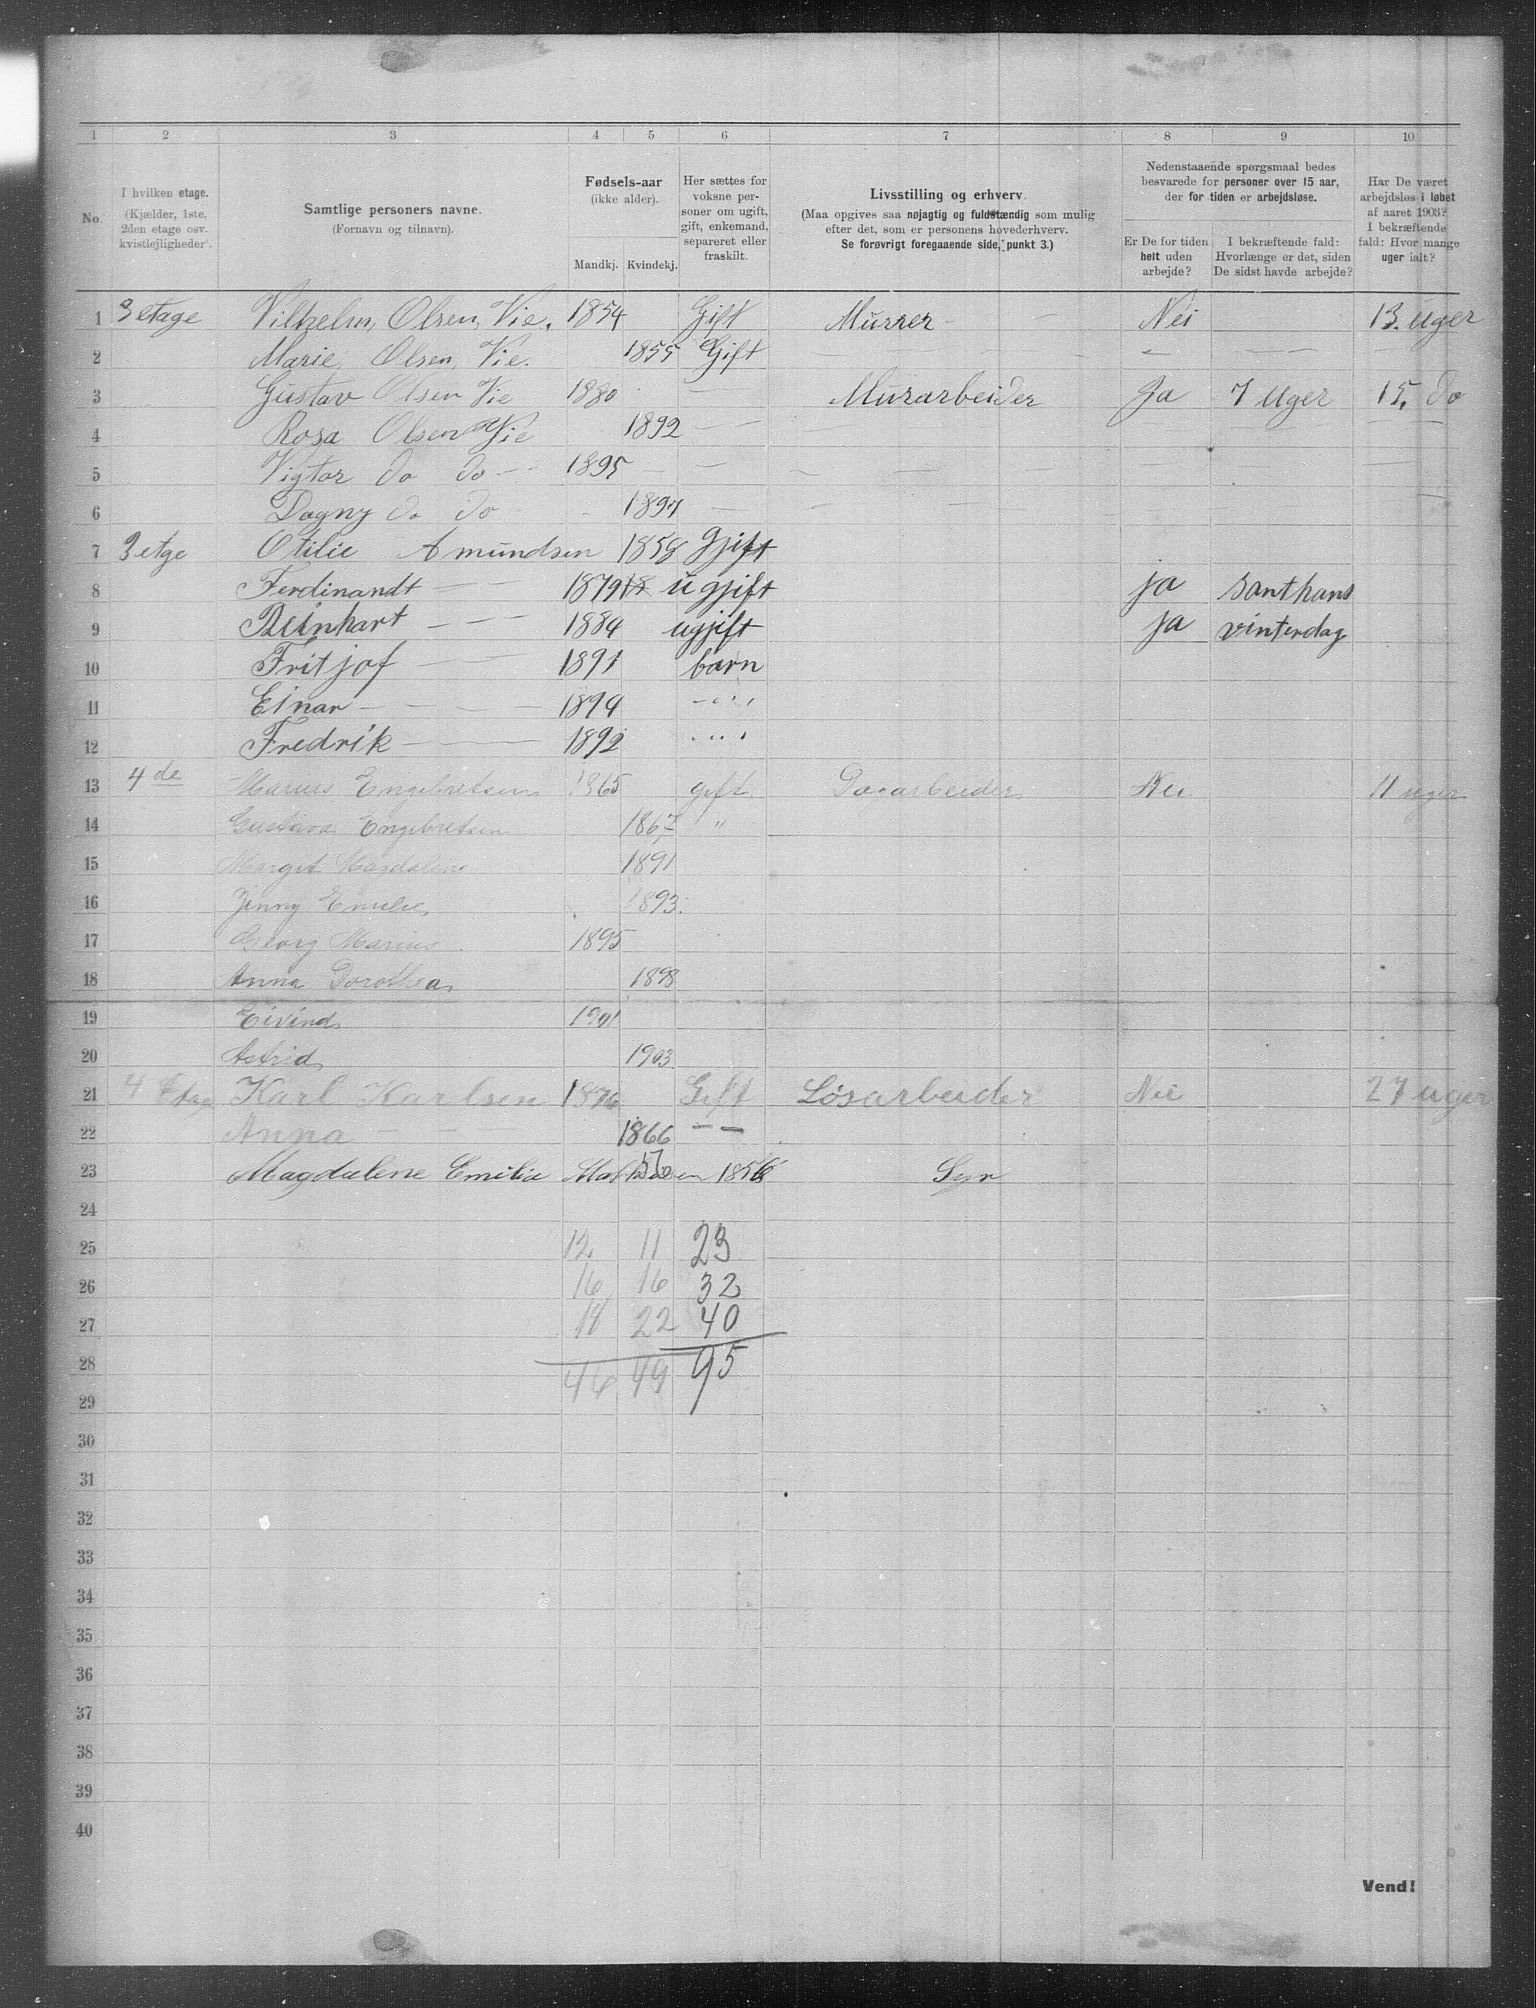 1 2 3 4 5 6 7 8 9 10
No.
I hvilken etage.
(Kjælder, 1ste,
2den etage osv.
kvistlejligheder).
Samtlige personers navne.
(Fornavn og tilnavn).
Fødsels-aar
(ikke alder).
Mandkj. Kvindekj.
Her sættes for
voksne per-
soner om ugift,
gift, enkemand,
separeret eller
fraskilt.
Livsstilling og erhverv.
(Maa opgives saa nøjagtig og fuldstændig som mulig
efter det, som er personens hovederhverv.
Se forøvrigt foregaaende side, punkt 3.)
Nedenstaaende spørgsmaal bedes
besvarede for personer over 15 aar,
der for tiden er arbejdsløse.
Er De for tiden
helt uden
arbejde?
I bekræftende fald:
Hvorlænge er det, siden
De sidst havde arbejde?
Har De været
arbejdsløs i løbet
af aaret 1903?
I bekræftende
fald: Hvor mange
uger ialt?
1 3 etage Vilhelm Olsen Vie. 1854 Gift Murrer - Nei 13. uger
2 Marie Olsen Vie. 1855 Gift
3 Gustav Olsen Vie 1880 Murarbeider Ja 7 Uger 15. Do
4 Rosa Olsen Vie 1892
5 Vigtor do do 1895
6 Dagny do do 1897
7 3 etge Otilie Amundsen 1858 gjift
8 Ferdinandt 1879 ugjift ja santhans
9 Beinhart 1884 ugjift ja vinterdag
10 Fritjof 1891 barn
11 Einar 1894 " "
12 Fredrik 1892 " "
13 4 de Marius Engebretsen 1865 gift Dagarbeider Nei 11 uger
14 Gustava Engebretsen 1867 "
15 Margit Magdalene 1891
16 Jenny Emilie 1893.
17 Georg Marius 1895
18 Anna Dorothea 1898
19 Eivind 1901
20 Astrid 1903
21 4 Etag Karl Karlsen 1876 Gift Løsarbeider Nei 27 uger
22 Anna 1866
23 Magdalene Emilie 1856 Syr
24
25 12 11 23
26 16 16 32
27 18 22 40
28 46 49 95
29
30
31
32
33
34
35
36
37
38
39
40
Vend!